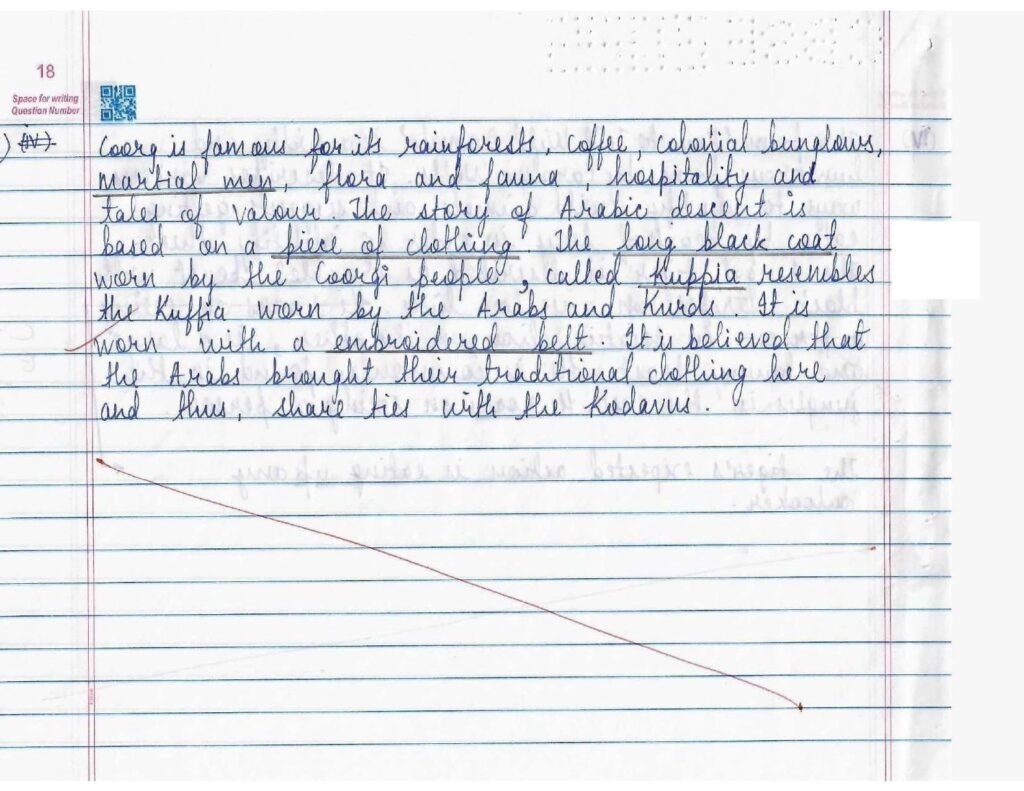 18
Space for writing
Question Number
) (IV).
Coorg is famous for its rainforests, coffee, colonial bunglows,
martial men, flora and fauna, hospitality and
tales of valour. The story of Arabic descent is
based on a piece of clothing. The long black coat
worn by the Coorgi people, called Kuppia resembles
the Kuffia worn by the Arabs and Kurds. It is
worn with a embroidered belt. It is believed that
the Arabs brought their traditional clothing here
and thus, share ties with the Kodavus.